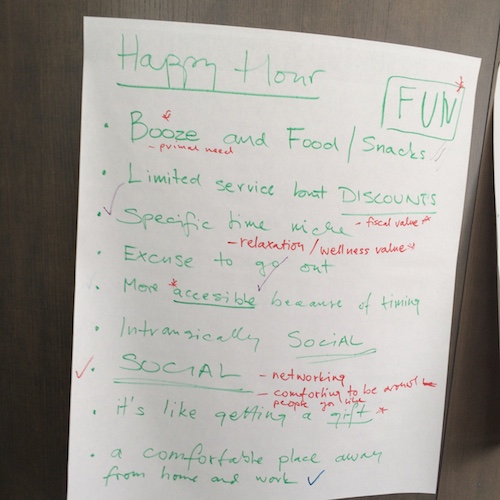 Happy Hour
FUN *
• Booze and Food / Snacks
- primal need
• Limited service but DISCOUNTS
• Specific time niche - fiscal value *
- relaxation / wellness value *
• Excuse to go out
• More * accesible because of timing
• Intransically SOCIAL
• SOCIAL - networking
- comforting to be around
people you like
• it's like getting a gift *
• a comfortable place away
from home and work ✓